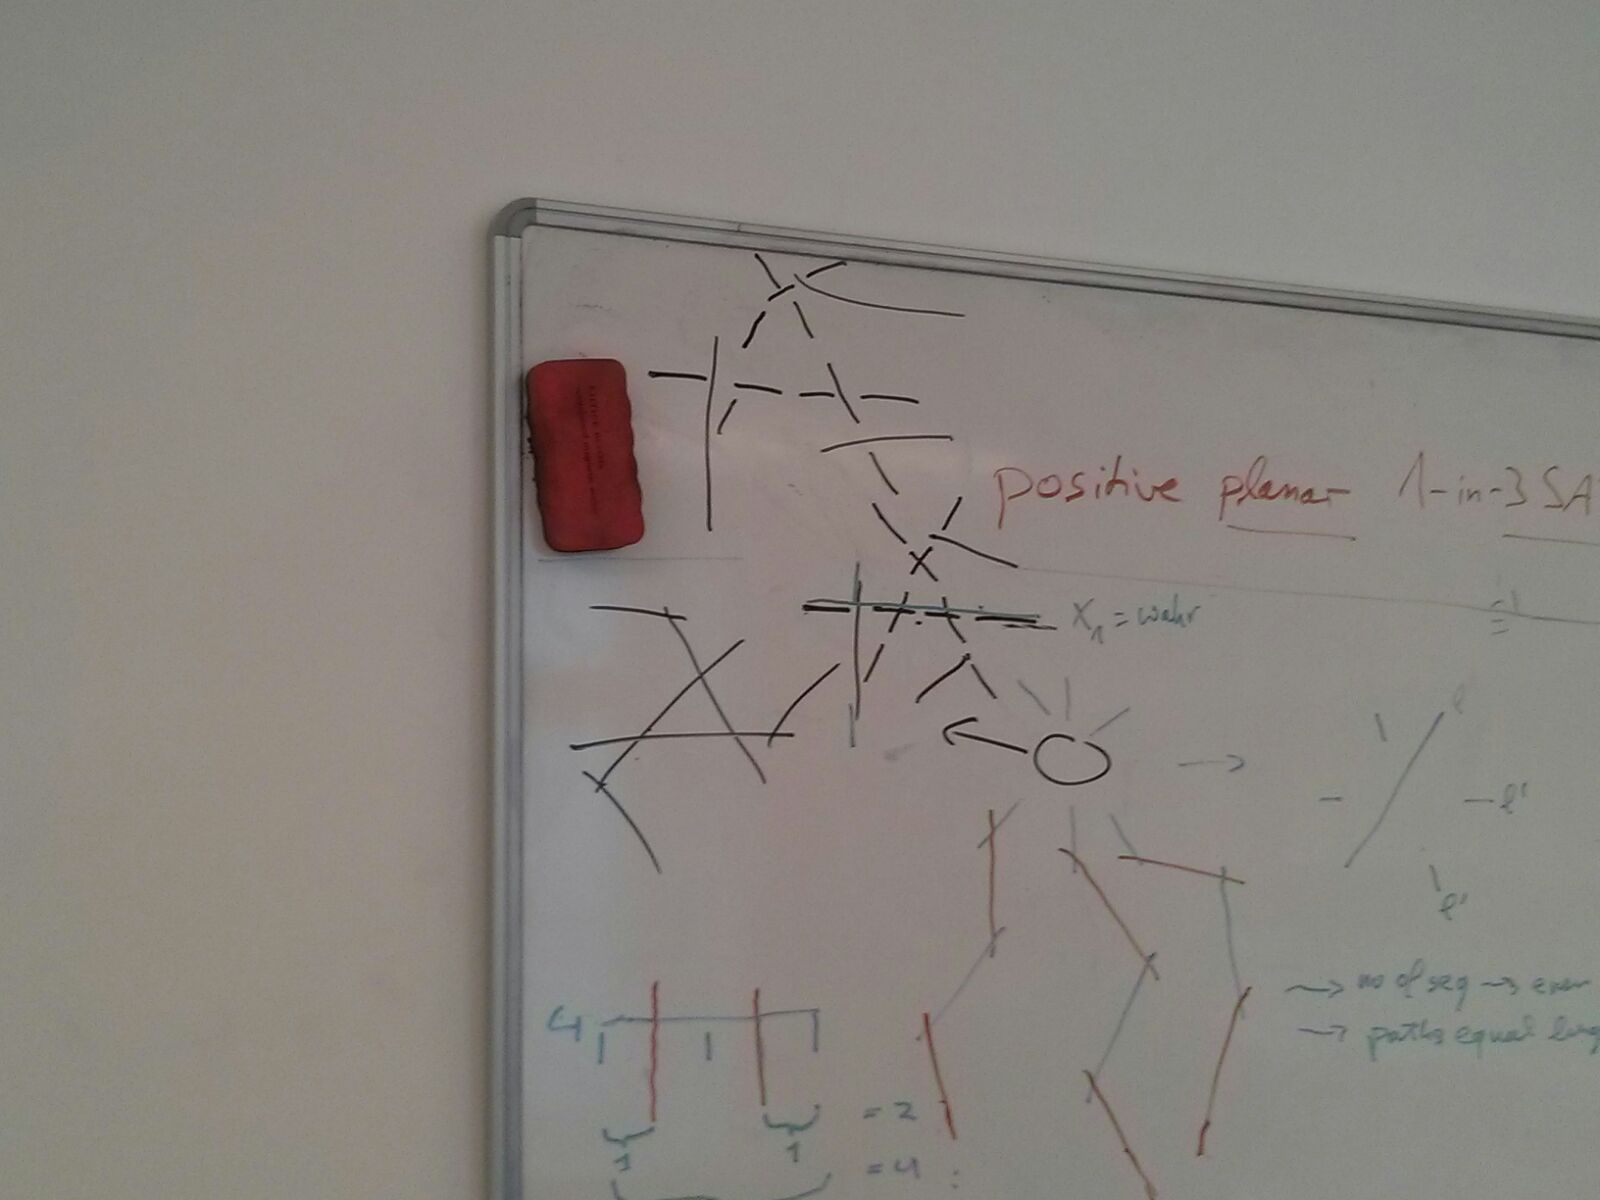 positive planar 1-in-3 SA
x₁ = wahr
l
l'
l'
→ no of seg → even
→ paths equal leng
4
1 1 = 2
= 4